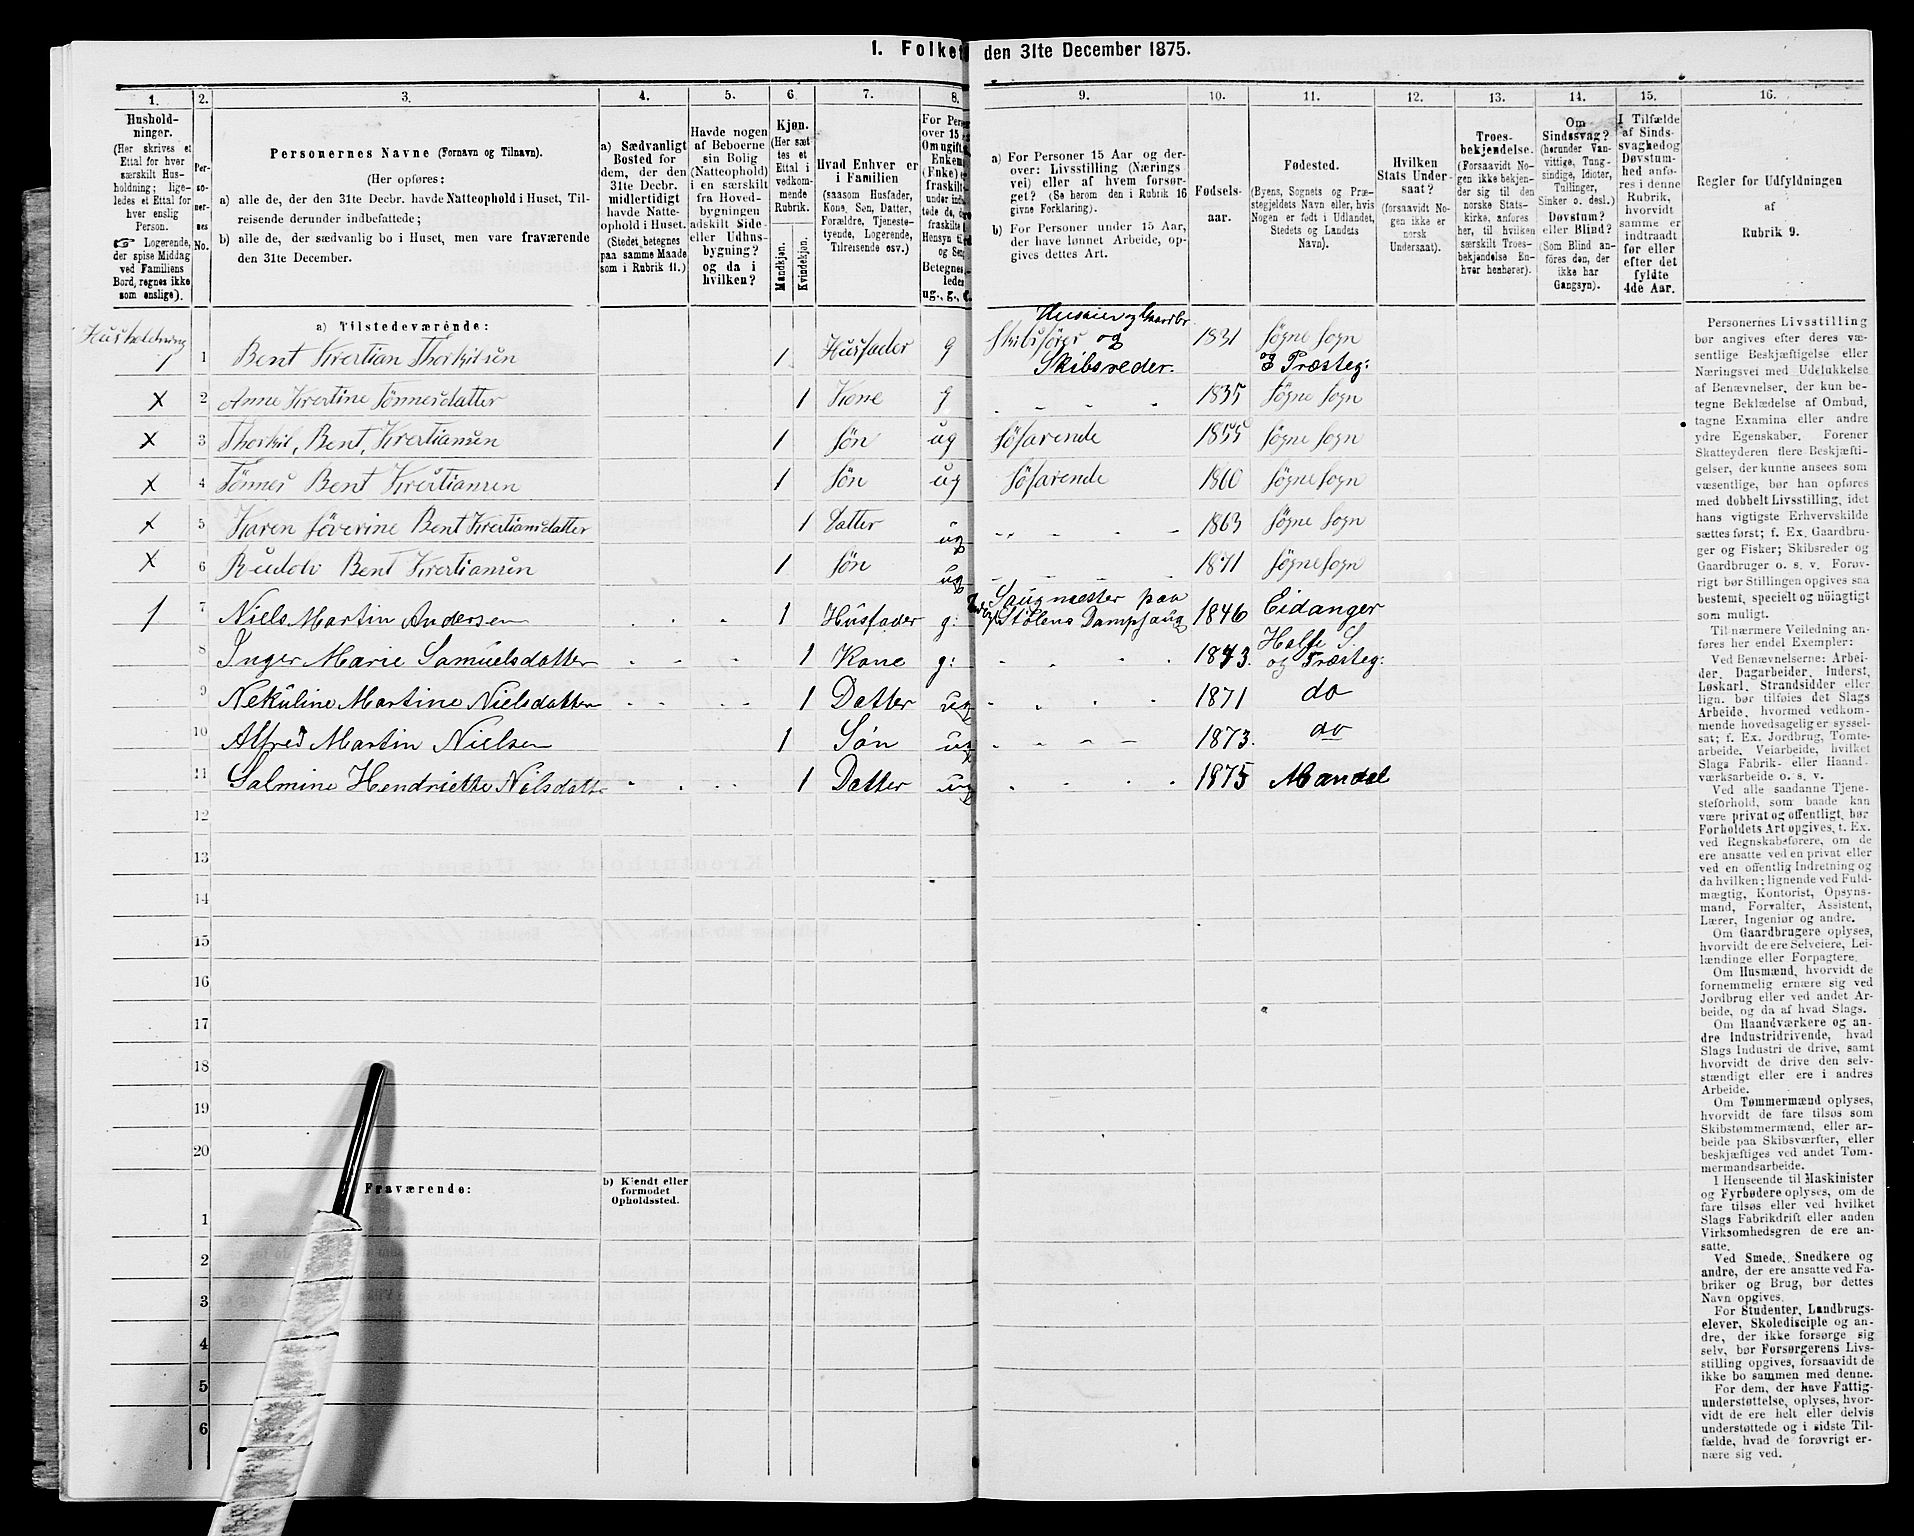 1. Folket
den 31te December 1875.
1.
2.
3.
4.
5.
6.
7.
8.
9.
10.
11.
12.
13.
14.
15.
16.
Hushold-
ninger.
(Her skrives et
Ettal for hver
særskilt Hus-
holdning; lige-
ledes et Ettal for
hver enslig
Person.
☞ Logerende,
der spise Middag
ved Familiens
Bord, regnes ikke
som enslige).
Per-
so-
ner-
nes
No.
Personernes Navne (Fornavn og Tilnavn).
(Her opføres:
a) alle de, der den 31te Decbr. havde Natteophold i Huset, Til-
reisende derunder indbefattede;
b) alle de, der sædvanlig bo i Huset, men vare fraværende
den 31te December.
a) Sædvanligt
Bosted for
dem, der den
31te Decbr.
midlertidigt
havde Natte-
ophold i Huset.
(Stedet betegnes
paa samme Maade
som i Rubrik 11.)
Havde nogen
af Beboerne
sin Bolig
(Natteophold)
i en særskilt
fra Hoved-
bygningen
adskilt Side-
eller Udhus-
bygning?
og da i
hvilken?
Kjøn.
(Her sæt-
tes et
Ettal i
vedkom-
mende
Rubrik.
Mandkjøn.
Kvindekjøn.
Hvad Enhver er
i Familien
(saasom Husfader,
Kone, Søn, Datter,
Forældre, Tjeneste-
tyende, Logerende,
Tilreisende osv.)
For Pers
over 15
Om ugift,
Enkem
(Enke) e
fraskilt
under inds
tede de, d
fraskilte
Hensyn ti
og Sen
Betegnes
ledes
ug., g., e
a) For Personer 15 Aar og der-
over: Livsstilling (Nærings-
vei) eller af hvem forsør-
get? (Se herom den i Rubrik 16
givne Forklaring).
b) For Personer under 15 Aar,
der have lønnet Arbeide, op-
gives dettes Art.
Fødsels-
aar.
Fødested.
(Byens, Sognets og Præ-
stegjeldets Navn eller, hvis
Nogen er født i Udlandet,
Stedets og Landets
Navn).
Hvilken
Stats Under-
saat?
(forsaavidt No-
gen ikke er
norsk
Undersaat).
Troes-
bekjendelse.
(Forsaavidt No-
gen ikke bekjen-
der sig til den
norske Stats-
kirke, anføres
her, til hvilken
særskilt Troes-
bekjendelse En-
hver henhører).
Om
Sindssvag?
(herunder Van-
vittige, Tung-
sindige, Idioter,
Tullinger,
Sinker o. desl.)
Døvstum?
eller Blind?
(Som Blind an-
føres den, der
ikke har
Gangsyn).
I Tilfælde
af Sinds-
svaghed og
Døvstum-
hed anfø-
res i denne
Rubrik,
hvorvidt
samme er
indtraadt
før eller
efter det
fyldte
4de Aar.
Regler for Udfyldningen
af
Rubrik 9.
Husholdning
a) Tilstedeværende:
Huseier og Gaardbr
1 1 Bent Krestian Thorkilsen 1 Husfader g Skibsfører og 1831 Søgne sogn
Skibsreder. og Præsteg:
x 2 Anne Krestine Tønnesdatter 1 Kone g 1835 Søgne Sogn
x 3 Thorkil, Bent, Krestiansen 1 Søn ug Søfarende 1855 Søgne Sogn
x 4 Tønnes Bent Krestiansen 1 Søn ug Søfarende 1860 Søgne Sogn
x 5 Karen Severine Bent Krestiansdatter 1 Datter ug 1863 Søgne Sogn
x 6 Rudolv Bent Krestiansen 1 Søn ug 1871 Søgne Sogn
Saugmester paa
1 7 Niels Martin Andersen 1 Husfader g: Stølens Dampsaug 1846 Eidanger
8 Inger Marie Samuelsdatter 1 Kone g: 1843. Halse S.
og Præsteg:
9 Nekuline Martine Nielsdatter 1 Datter ug 1871 do
10 Alfred Martin Nielsen 1 Søn ug 1873. do
11 Salmine Hendriette Nilsdatter 1 Datter ug 1875 Mandal
12
13
14
15
16
17
18
19
20
Fraværende:
b) Kjendt eller
formodet
Opholdssted.
1
2
3
4
5
6
Personernes Livsstilling
bør angives efter deres væ-
sentlige Beskjæftigelse eller
Næringsvei med Udelukkelse
af Benævnelser, der kun be-
tegne Beklædelse af Ombud,
tagne Examina eller andre
ydre Egenskaber. Forener
Skatteyderen flere Beskjæfti-
gelser, der kunne ansees som
væsentlige, bør han opføres
med dobbelt Livsstilling, idet
hans vigtigste Erhvervskilde
sættes først; f. Ex. Gaardbru-
ger og Fisker; Skibsreder og
Gaardbruger o. s. v. Forøv-
rigt bør Stillingen opgives saa
bestemt, specielt og nøiagtigt
som muligt.
Til nærmere Veiledning an-
føres her endel Exempler:
Ved Benævnelserne: Arbei-
der, Dagarbeider, Inderst,
Løskarl, Strandsidder eller
lign. bør tilføies det Slags
Arbeide, hvormed vedkom-
mende hovedsagelig er syssel-
sat; f. Ex. Jordbrug, Tomte-
arbeide, Veiarbeide, hvilket
Slags Fabrik- eller Haand-
værksarbeide o. s. v.
Ved alle saadanne Tjene-
steforhold, som baade kan
være privat og offentligt, bør
Forholdets Art opgives, t. Ex.
ved Regnskabsførere, om de
ere ansatte ved en privat eller
ved en offentlig Indretning og
da hvilken; lignende ved Fuld-
mægtig, Kontorist, Opsyns-
mand, Forvalter, Assistent,
Lærer, Ingeniør og andre.
Om Gaardbrugere oplyses,
hvorvidt de ere Selveiere, Lei-
lændinge eller Forpagtere.
Om Husmænd, hvorvidt de
fornemmelig ernære sig ved
Jordbrug eller ved andet Ar-
beide, og da af hvad Slags.
Om Haandværkere og an-
dre Industridrivende, hvad
Slags Industri de drive, samt
hvorvidt de drive den selv-
stændigt eller ere i andres
Arbeide.
Om Tømmermænd oplyses,
hvorvidt de fare tilsøs som
Skibstømmermænd, eller ar-
beide paa Skibsværfter, eller
beskjæftiges ved andet Tøm-
mermandsarbeide.
I Henseende til Maskinister
og Fyrbødere oplyses, om de
fare tilsøs eller ved hvilket
Slags Fabrikdrift eller anden
Virksomhedsgren de ere an-
satte.
Ved Smede, Snedkere og
andre, der ere ansatte ved Fa-
briker og Brug, bør dettes
Navn opgives.
For Studenter, Landbrugs-
elever, Skoledisciple og an-
dre, der ikke forsørge sig
selv, bør Forsørgerens Livs-
stilling opgives, forsaavidt de
ikke bo sammen med denne.
For dem, der have Fattig-
understøttelse, oplyses, hvor-
vidt de ere helt eller delvis
understøttede og i sidste Til-
fælde, hvad de forøvrigt er-
nære sig ved.